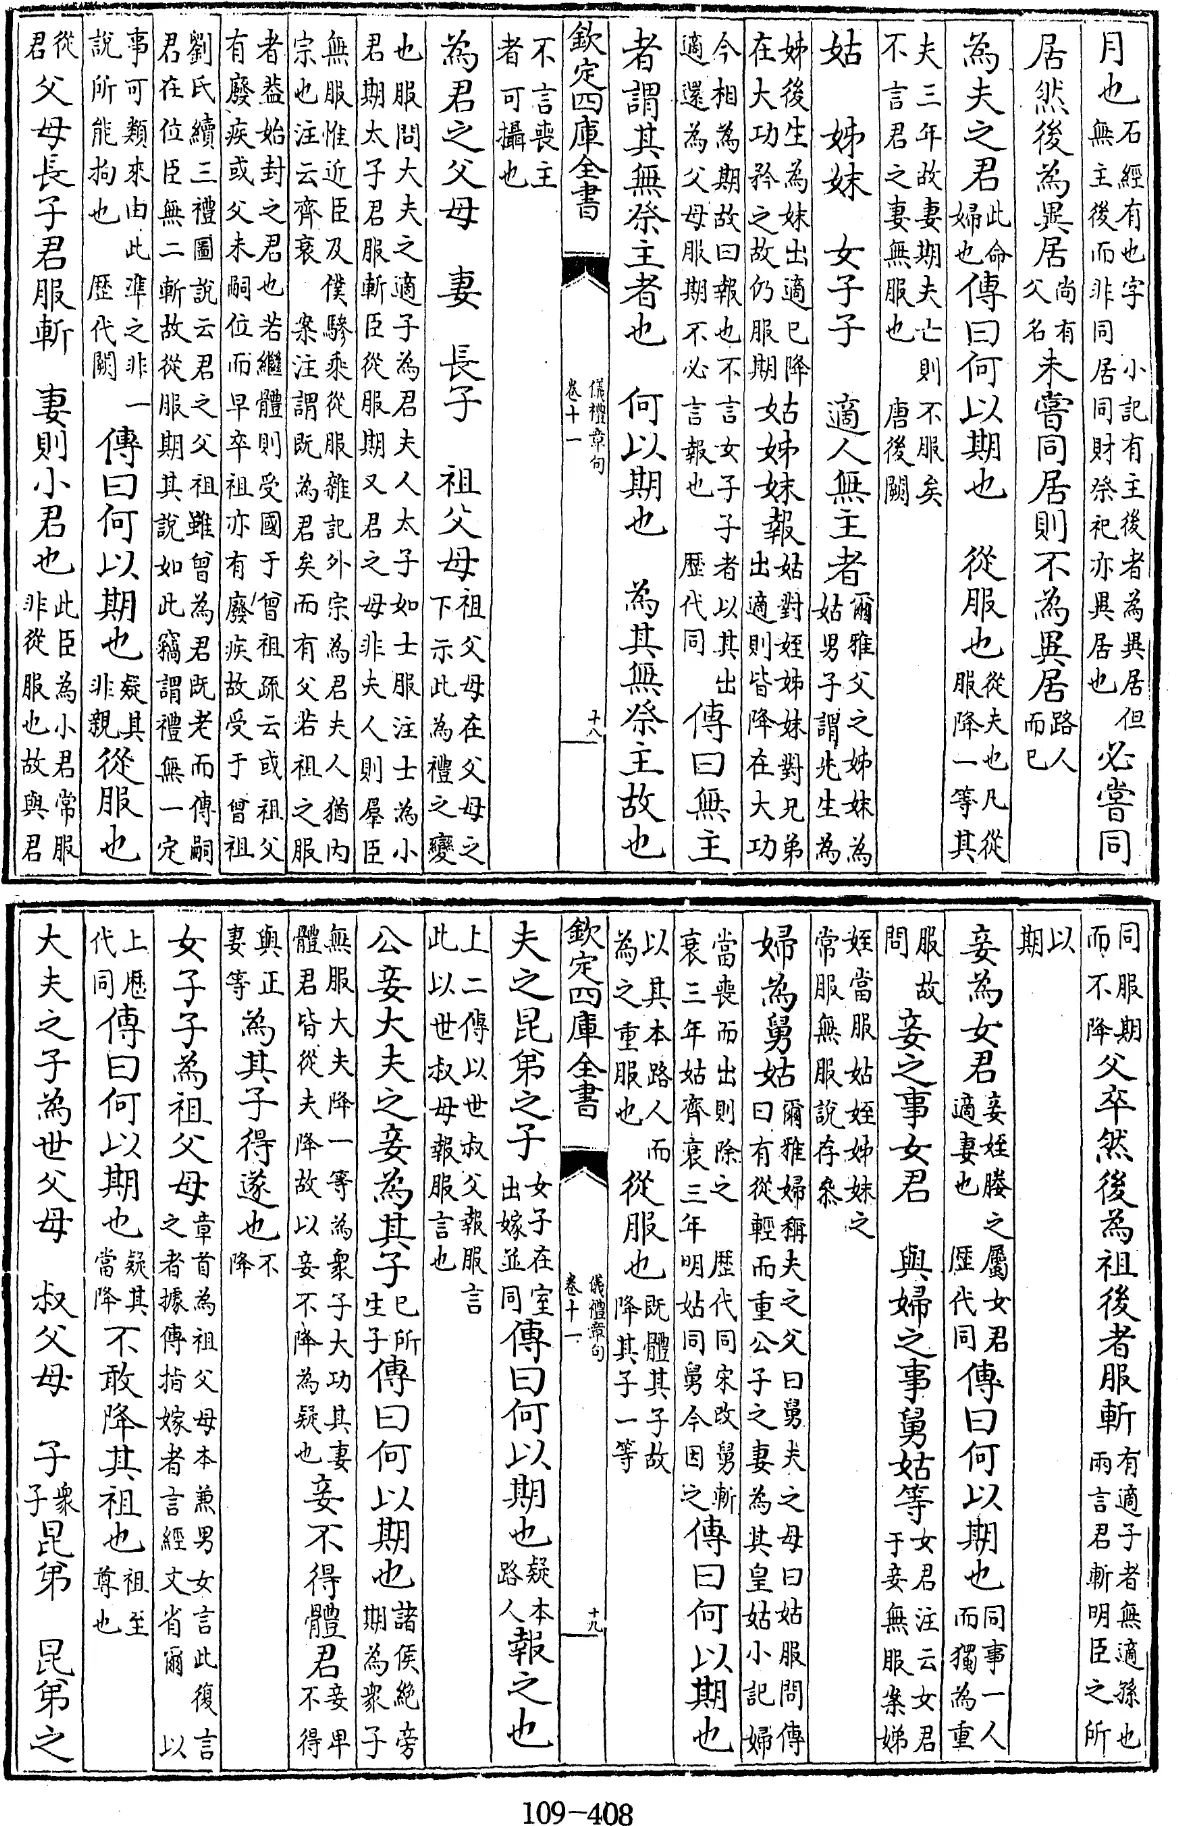 月也石經有也字　小記有主後者為異居但無主後而非同居同財祭祀亦異居也必嘗同
居然後為異居尚有父名未嘗同居則不為異居路人而已
為夫之君此命婦也傳曰何以期也　從服也從夫也凡從服降一等其
夫三年故妻期夫亡則不服矣不言君之妻無服也　唐後闕
姑　姊妹　女子子　適人無主者爾雅父之姊妹為姑男子謂先生為
姊後生為妹出適已降在大功矜之故仍服期姑姊妹報姑對姪姊妹對兄弟出適則皆降在大功
今相為期故曰報也不言女子子者以其出適還為父母服期不必言報也　歷代同傳曰無主
者謂其無祭主者也　何以期也　為其無祭主故也
欽定四庫全書　儀禮章句　卷十一　十八
不言喪主者可攝也
為君之父母　妻　長子　祖父母祖父母在父母之下示此為禮之變
也服問大夫之適子為君夫人太子如士服注士為小君期太子君服斬臣從服期又君之母非夫人則羣臣
無服惟近臣及僕驂乘從服雜記外宗為君夫人猶内宗也注云齊衰　案注謂既為君矣而有父若祖之服
者葢始封之君也若繼體則受國于曾祖疏云或祖父有廢疾或父未嗣位而早卒祖亦有廢疾故受于曾祖
劉氏續三禮圖說云君之父祖雖曾為君既老而傳嗣君在位臣無二斬故從服期其說如此竊謂禮無一定
事可類來由此準之非一說所能拘也　歷代闕　傳曰何以期也疑其非親從服也
從君父母長子君服斬　妻則小君也此臣為小君常服非從服也故與君
同服期而不降父卒然後為祖後者服斬有適子者無適孫也兩言君斬明臣之所
以期
妾為女君妾姪媵之屬女君適妻也　歷代同傳曰何以期也同事一人而獨為重
服故問　妾之事女君　與婦之事舅姑等女君注云女君于妾無服案娣
姪當服姑姪姊妹之常服無服說存參
婦為舅姑爾雅婦稱夫之父曰舅夫之母曰姑服問傳曰有從輕而重公子之妻為其皇姑小記婦
當喪而出則除之　歷代同宋改舅斬衰三年姑齊衰三年明姑同舅今因之傳曰何以期也
以其本路人而為之重服也　從服也既體其子故降其子一等
欽定四庫全書　儀禮章句　卷十一　十九
夫之昆弟之子女子在室出嫁並同傳曰何以期也疑本路人報之也
上二傳以世叔父報服言此以世叔母報服言也
公妾大夫之妾為其子已所生子傳曰何以期也諸侯絶旁期為衆子
無服大夫降一等為衆子大功其妻體君皆從夫降故以妾不降為疑也妾不得體君妾卑不得
與正妻等為其子得遂也不降
女子子為祖父母章首為祖父母本兼男女言此復言之者據傳指嫁者言經文省爾　以
上歷代同傳曰何以期也疑其當降不敢降其祖也祖至尊也
大夫之子為世父母　叔父母　子衆子昆弟　昆弟之
109-408